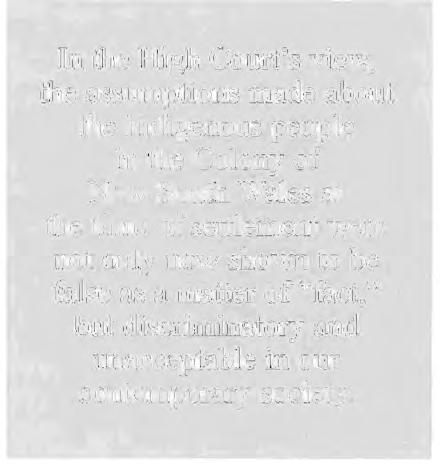 In the High Court's view,
the assumptions made about
the indigenous people
in the Colony of
New South Wales at
the time of settlement were
not only now shown to be
false as a matter of "fact,"
but discriminatory and
unacceptable in our
contemporary society.